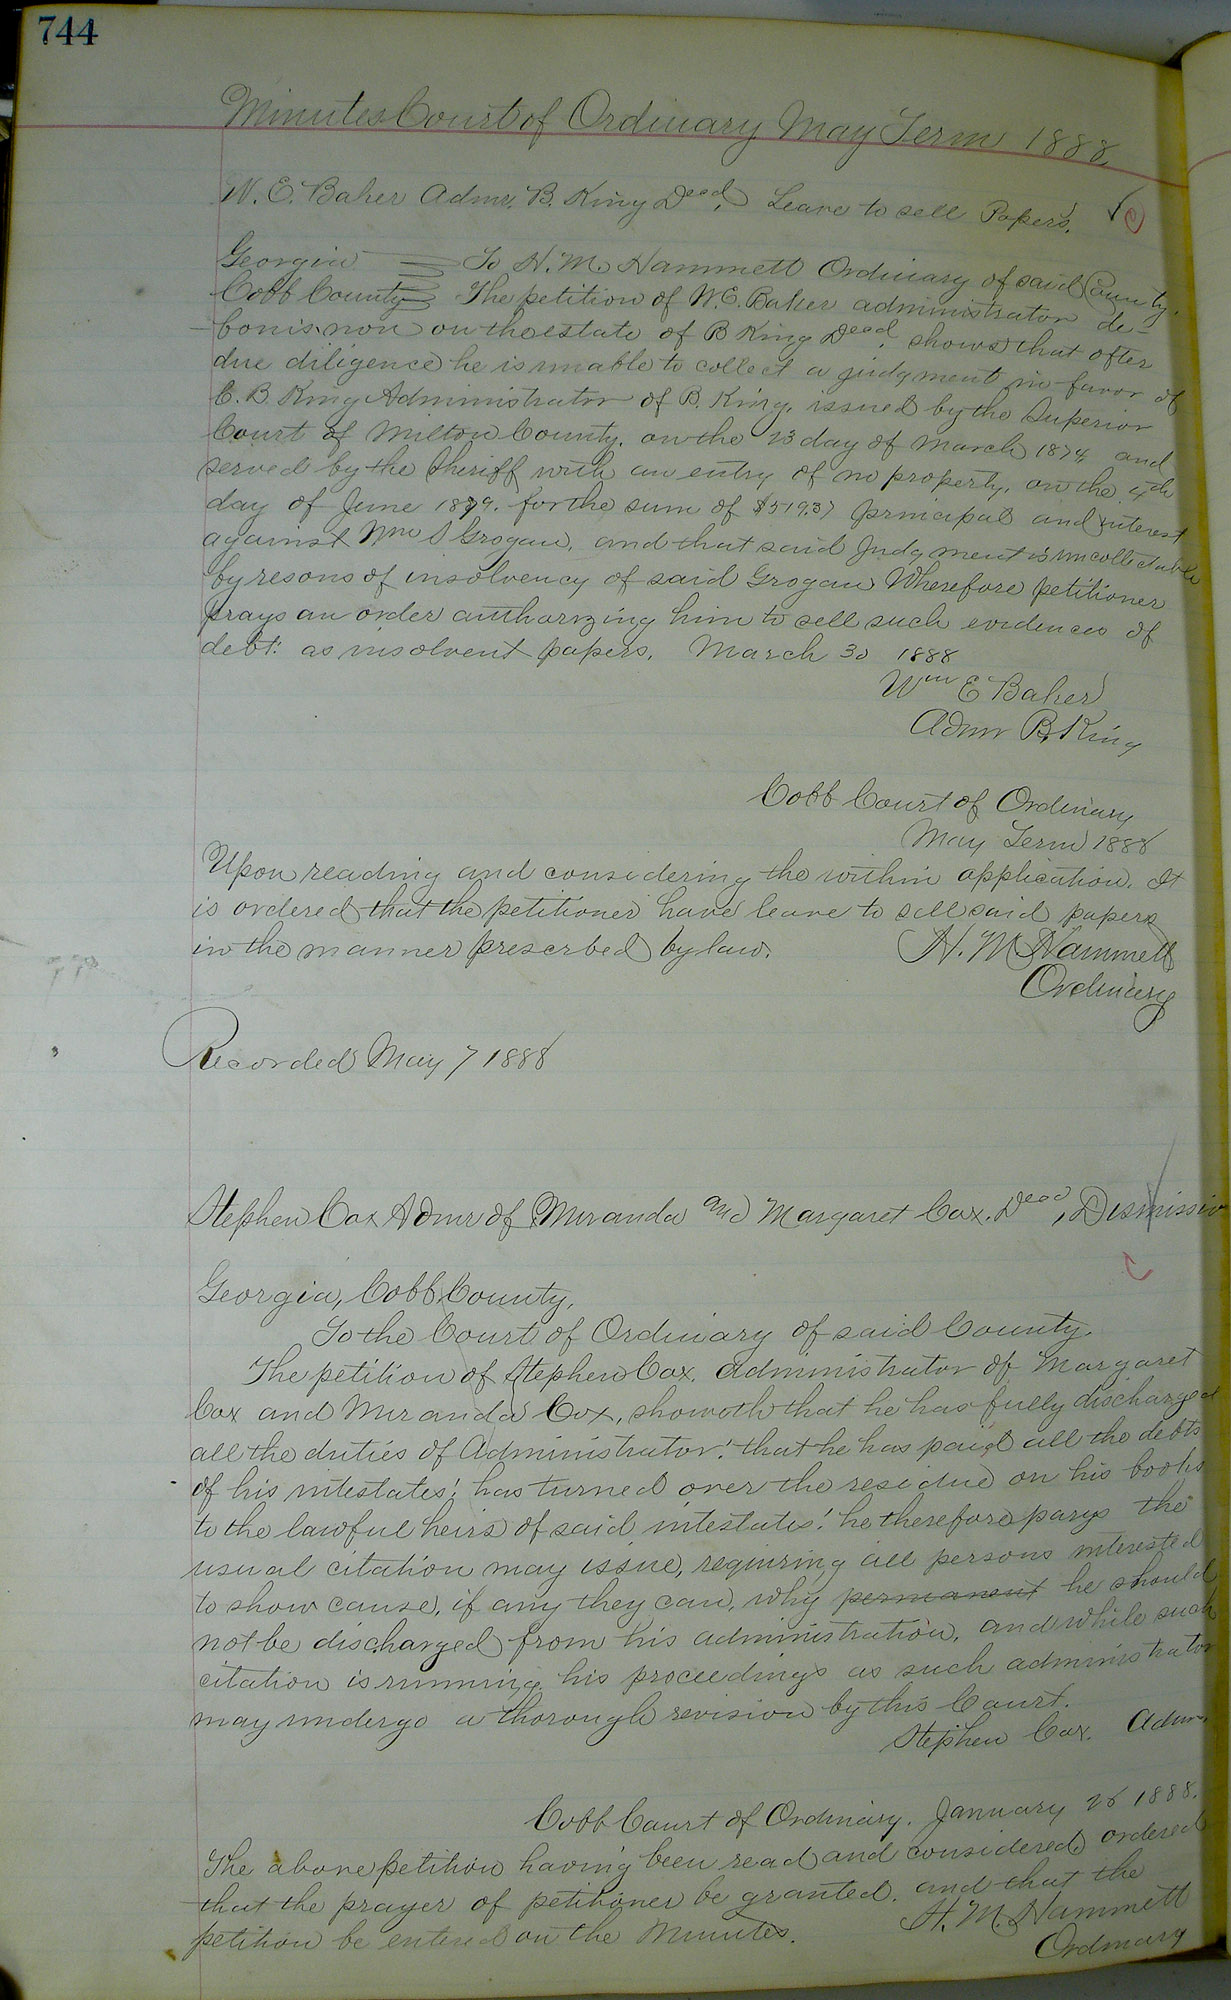 744
Minutes Court of Ordinary May Term 1888
W. E. Baker Admr. B. King Decd. Leave to sell Papers.
Georgia To H. M. Hammett Ordinary of said County.
Cobb County The petition of W. E. Baker administrator de-
bonis non on the estate of B King Decd. shows that after
due diligence he is unable to collect a judgment in favor of
C. B. King Administrator of B. King, issued by the Superior
Court of Milton County, on the 23 day of March 1874 and
served by the Sheriff with an entry of no property, on the 4th
day of June 1879. for the sum of $519.37 principal and interest
against Wm S Grogan, and that said Judgment is uncollectable
by resons of insolvency of said Grogan Wherefore petitioner
prays an order authorizing him to sell such evidences of
debt: as insolvent papers. March 30 1888
Wm E Baker
Admr B. King
Cobb Court of Ordinary
May Term 1888
Upon reading and considering the within application. It
is ordered that the petitioner have leave to sell said papers
in the manner prescrbed by law. H. M. Hammett
Ordinary
Recorded May 7 1888
Stephen Cox Admr of Miranda and Margaret Cox. Decd, Dismissiv
Georgia, Cobb County,
To the Court of Ordinary of said County.
The petition of Stephen Cox, Administrator of Margaret
Cox and Miranda Cox, showeth that he has fully discharged
all the duties of Administrator: that he has paid all the debts
of his intestates; has turned over the residue on his books
to the lawful heirs of said intestates: he therefore parys the
usual citation may issue, requiring all persons interested
to show cause, if any they can, why permanent he should
not be discharged from his administration, and while such
citation is running his proceedings as such administrator
may undergo a thorough revision by this Court.
Stephen Cox. Admr.
Cobb Court of Ordinary. January 28 1888.
The above petition having been read and considered ordered
that the prayer of petitioner be granted. and that the
petition be entered on the Minutes. H. M. Hammett
Ordinary